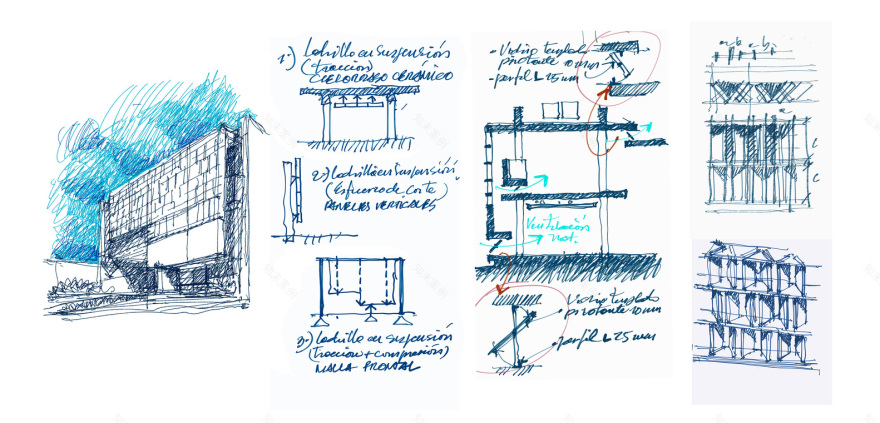 1.) Ladrillo en suspensión
(tracción)
CIELORRASO CERÁMICO
2) Ladrillo en Suspensión
(Esfuerzo de corte)
PANELES VERTICALES
3.) Ladrillo en suspensión
(tracción + compresión)
MALLA FRONTAL
• Vidrio templado
pivotante 10 mm
- perfil L 25 mm
Ventilación
nat.
Vidrio templado
pivotante 10 mm
• perfil L 25 mm
a b b